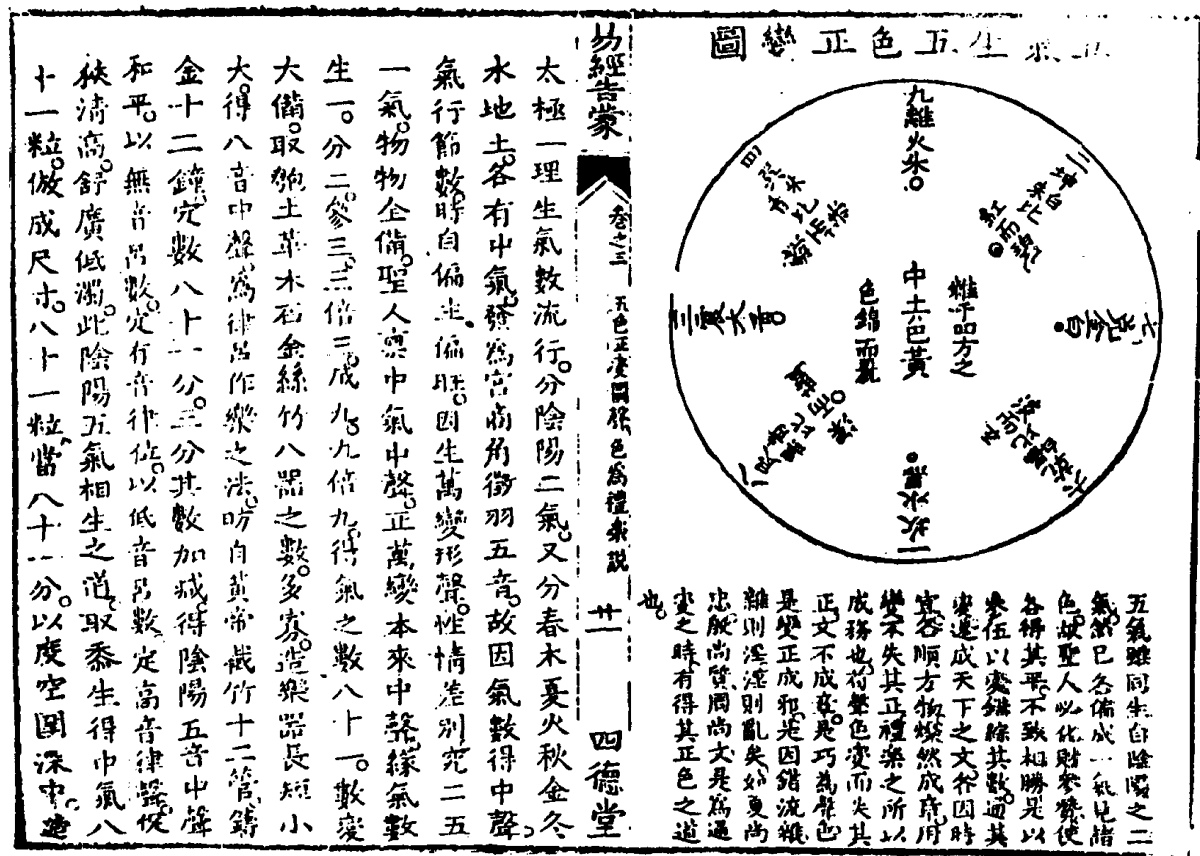 五氣生五色正變圖
九離火朱
二坤白朱比紅而
七兌金白
一坎水黑
三震木青
中土色黃
雜汙四方之
色錦而親
五氣雖同生自陰陽之二
氣然已各偏成一氣見諸
色故聖人必化財參贊使
各得其平不致相勝是以
參伍以變錯綜其數通其
變遂成天下之文各因時
宜各順方物燦然成章用
變不失其正禮樂之所以
成務也若聲色變而失其
正文不成章是巧為聲色
是變正成邪是因錯流雜
雜則淫淫則亂矣如夏尚
忠殷尚質周尚文是為通
變之時有得其正色之道
也
易經告蒙
卷之三 五色正變圖 色為禮樂說
廿一
四德堂
太極一理生氣數流行分陰陽二氣又分春木夏火秋金冬
水地土各有中氣發為宮商角徵羽五音故因氣數得中聲
氣行節數時自偏生偏旺因生萬變形聲性情差別究二五
一氣物物全備聖人稟中氣中聲正萬變本來中聲緣氣數
生一分二參三三倍三成九九倍九得氣之數八十一數變
大備取匏土革木石金絲竹八器之數多寡造樂器長短小
大得八音中聲為律呂作樂之法昉自黃帝截竹十二管鑄
金十二鐘穴數八十一分三分其數加減得陰陽五音中聲
和平以無音呂數定有音律位以低音呂數定高音律聲從
狹清高舒廣低濁此陰陽五氣相生之道取黍生得中氣八
十一粒倣成尺寸八十一粒當八十一分以度空圍深中